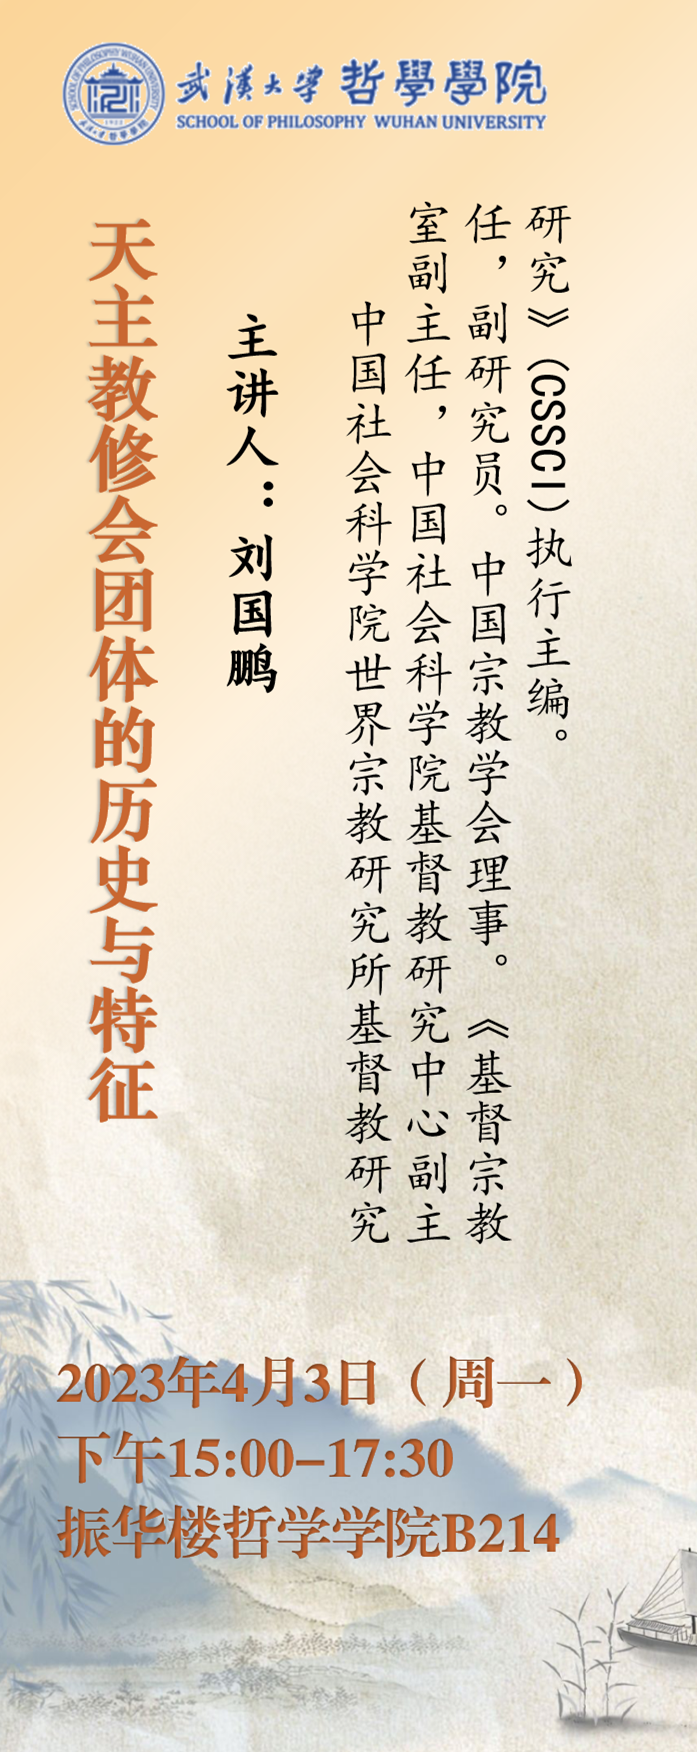 SCHOOL OF PHILOSOPHY WUHAN UNIVERSITY
1922
武漢大学哲學學院
武漢大学 哲學學院
SCHOOL OF PHILOSOPHY WUHAN UNIVERSITY
天主教修会团体的历史与特征
主讲人：刘国鹏
中国社会科学院世界宗教研究所基督教研究
室副主任，中国社会科学院基督教研究中心副主
任，副研究员。中国宗教学会理事。《基督宗教
研究》（CSSCI）执行主编。
2023年4月3日（周一）
下午15:00-17:30
振华楼哲学学院B214